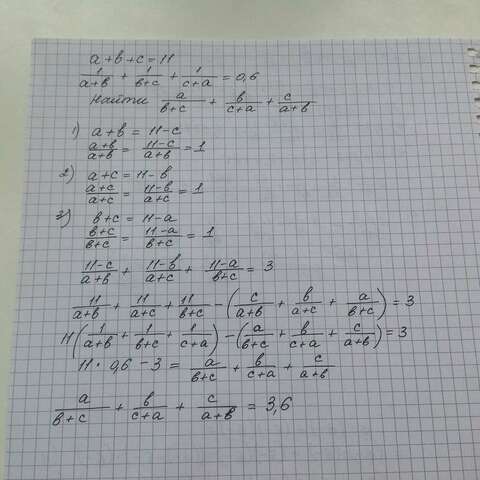 a+b+c=11
1/(a+b) + 1/(b+c) + 1/(c+a) = 0,6
Найти a/(b+c) + b/(c+a) + c/(a+b)
1) a+b = 11-c
(a+b)/(a+b) = (11-c)/(a+b) = 1
2) a+c = 11-b
(a+c)/(a+c) = (11-b)/(a+c) = 1
3) b+c = 11-a
(b+c)/(b+c) = (11-a)/(b+c) = 1
(11-c)/(a+b) + (11-b)/(a+c) + (11-a)/(b+c) = 3
11/(a+b) + 11/(a+c) + 11/(b+c) - (c/(a+b) + b/(a+c) + a/(b+c)) = 3
11(1/(a+b) + 1/(b+c) + 1/(c+a)) - (a/(b+c) + b/(c+a) + c/(a+b)) = 3
11 · 0,6 - 3 = a/(b+c) + b/(c+a) + c/(a+b)
a/(b+c) + b/(c+a) + c/(a+b) = 3,6